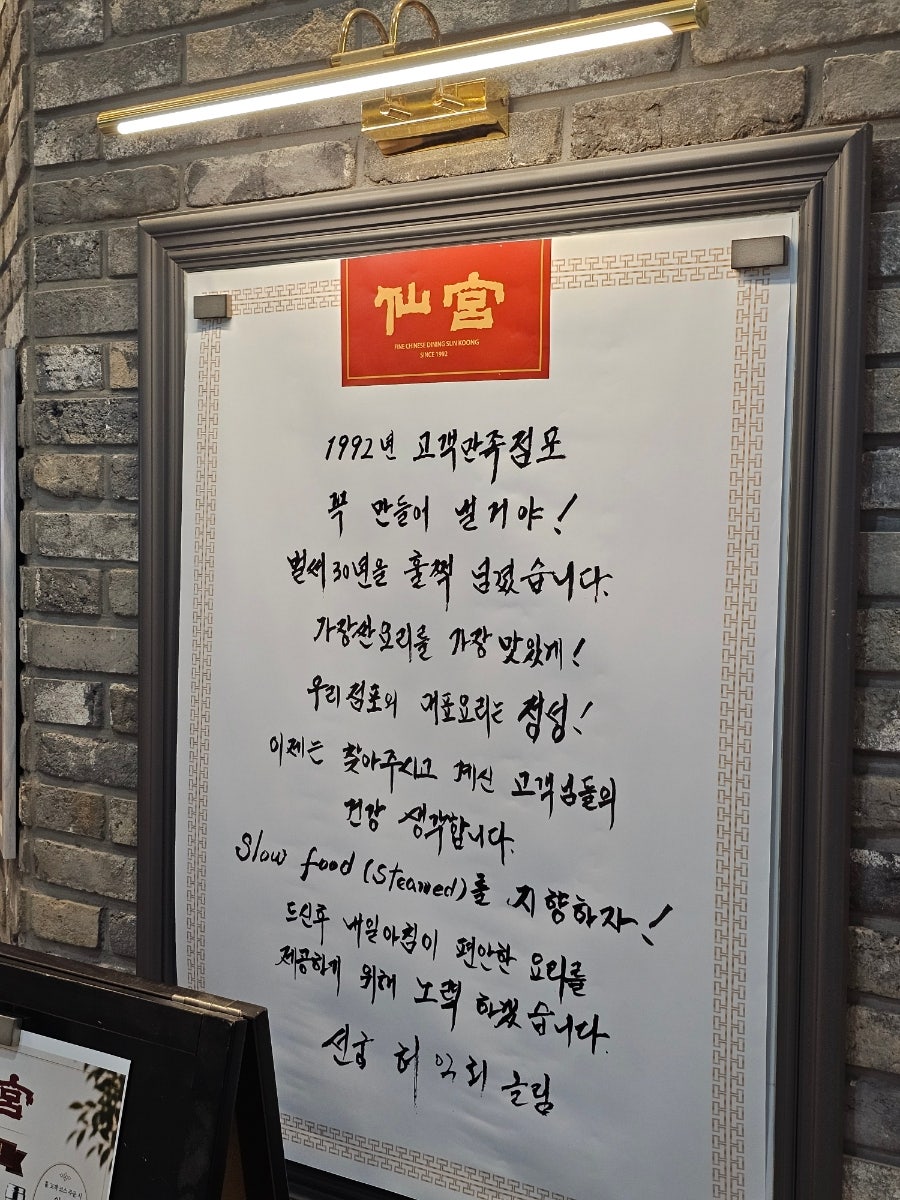 仙宮
FINE CHINESE DINING SUN KOONG
SINCE 1992
1992년 고객만족점포
꼭 만들어 낼거야!
벌써 30년을 훌쩍 넘겼습니다.
가장싼요리를 가장맛있게!
우리점포의 대표요리는 정성!
이제는 찾아주시고 계신 고객님들의
건강 생각합니다.
Slow food (Steamed)를 지향하자!
드신후 내일아침이 편안한 요리를
제공하게 위해 노력 하겠습니다.
선궁 허 익 회 드림
宮